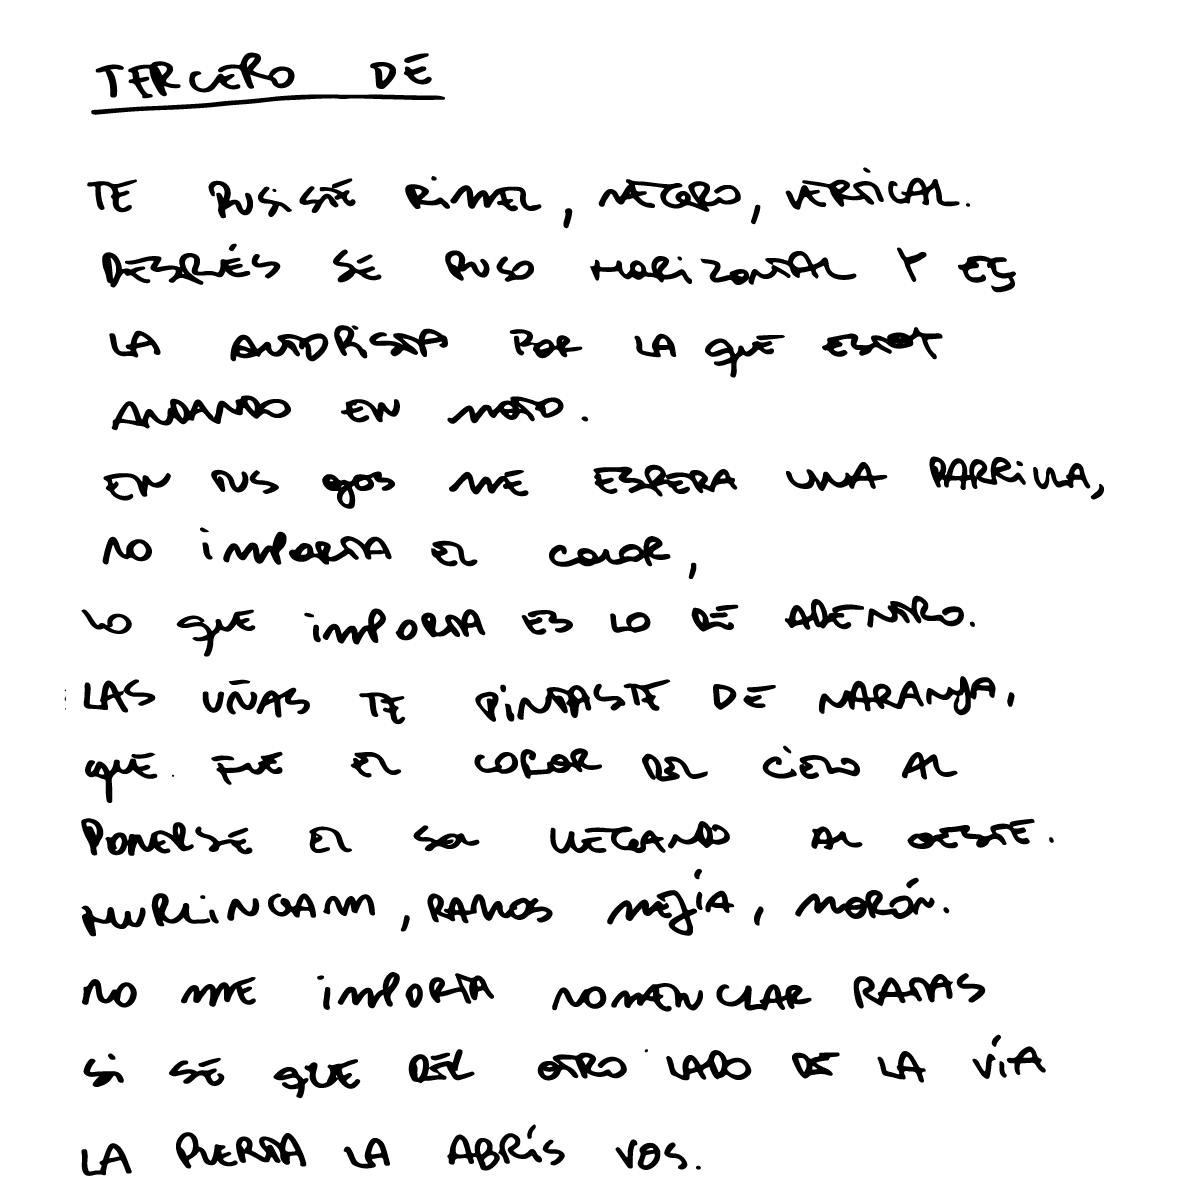 TERCERO DE
TE PUSISTE RIMEL, NEGRO, VERTICAL.
DESPUÉS SE PUSO HORIZONTAL Y ES
LA AUTOPISTA POR LA QUE ESTOY
ANDANDO EN MOTO.
EN TUS OJOS ME ESPERA UNA PARRILLA,
NO IMPORTA EL COLOR,
LO QUE IMPORTA ES LO DE ADENTRO.
LAS UÑAS TE PINTASTE DE NARANJA,
QUE FUE EL COLOR DEL CIELO AL
PONERSE EL SOL LLEGANDO AL OESTE.
HURLINGAM, RAMOS MEJÍA, MORÓN.
NO ME IMPORTA NOMENCLAR PARADAS
SI SE QUE DEL OTRO LADO DE LA VÍA
LA PUERTA LA ABRÍS VOS.